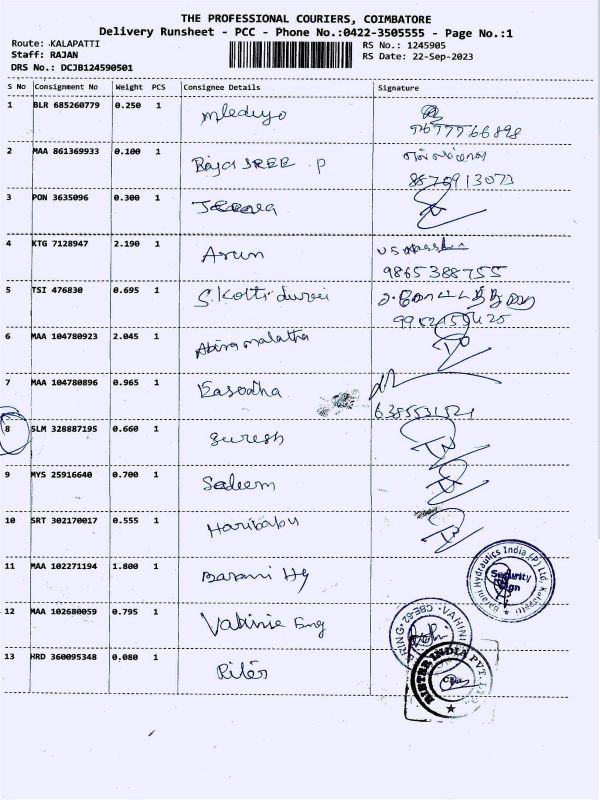 THE PROFESSIONAL COURIERS, COIMBATORE
Delivery Runsheet - PCC - Phone No.:0422-3505555 - Page No.:1
Route: KALAPATTI RS No.: 1245905
Staff: RAJAN RS Date: 22-Sep-2023
DRS No.: DCJB124590501
S No Consignment No Weight PCS Consignee Details Signature
1 BLR 685260779 0.250 1
2 MAA 861369933 0.100 1 Raja SREE .P
8870913073
3 PON 3635096 0.300 1
4 KTG 7128947 2.190 1 Arun
9865388755
5 TSI 476830 0.695 1 S. Kotti durai
6 MAA 104780923 2.045 1
7 MAA 104780896 0.965 1 Easodha
8 SLM 328887195 0.660 1 Suresh
9 MYS 25916640 0.700 1 Sadeem
10 SRT 302170017 0.555 1 Haribabu
11 MAA 102271194 1.800 1 Barani Hy
Barani Hydraulics India (P) Ltd, Kalapatti
Security
Sign
12 MAA 102680059 0.795 1 Vahinie Eng
13 HRD 360095348 0.080 1